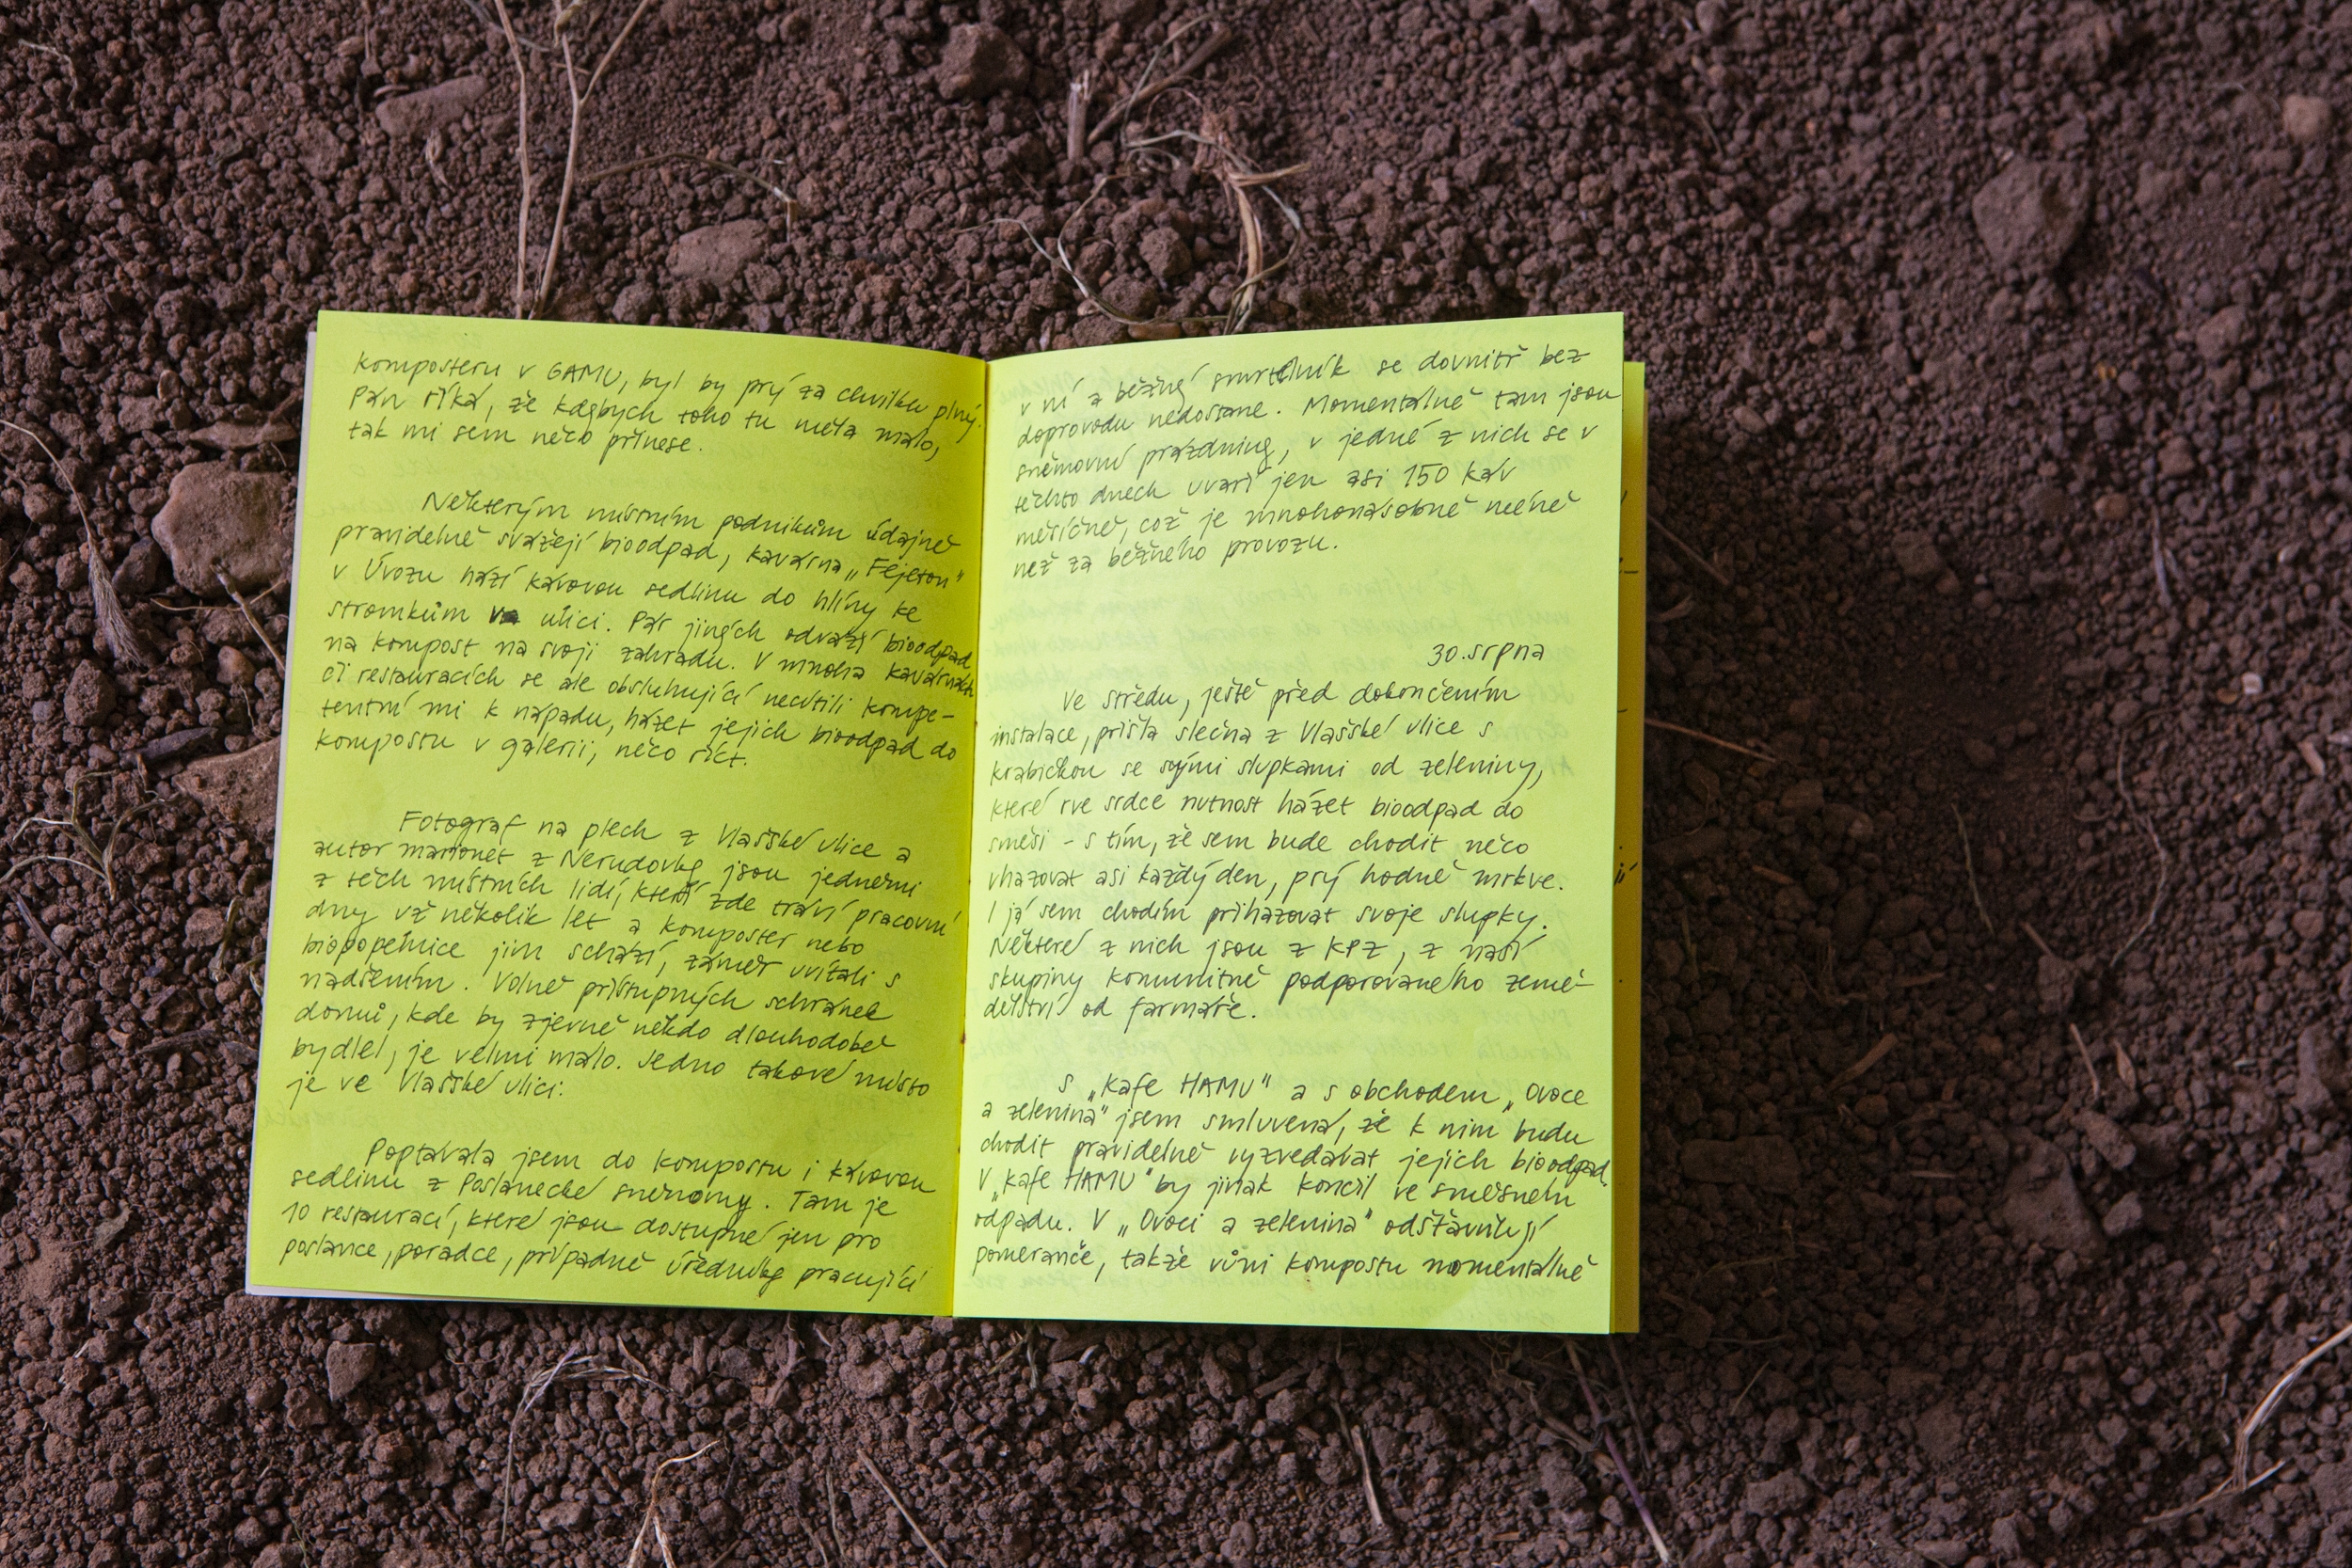 komposteru v GAMU, byl by prý za chvilku plný.
Pán říká, že kdybych toho tu měla málo,
tak mi sem něco přinese.
Některým místním podnikům údajně
pravidelně svážejí bioodpad, kavárna „Fejeton"
v Úvozu hází kávovou sedlinu do hlíny ke
stromkům v ulici. Pár jiných odváží bioodpad
na kompost na svoji zahradu. V mnoha kavárnách
či restauracích se ale obsluhující necítili kompe-
tentní mi k nápadu, házet jejich bioodpad do
kompostu v galerii, něco říct.
Fotograf na plech z Vlašské ulice a
autor marionet z Nerudovky jsou jedněmi
z těch místních lidí, kteří zde tráví pracovní
dny už několik let a komposter nebo
biopopelnice jim schází, záměr uvítali s
nadšením. Volně přístupných schránek
domů, kde by zjevně někdo dlouhodobě
bydlel, je velmi málo. Jedno takové místo
je ve Vlašské ulici:
Poptávala jsem do kompostu i kávovou
sedlinu z Poslanecké sněmovny. Tam je
10 restaurací, které jsou dostupné jen pro
poslance, poradce, případně úředníky pracující
v ní a běžný smrtelník se dovnitř bez
doprovodu nedostane. Momentálně tam jsou
sněmovní prázdniny, v jedné z nich se v
těchto dnech uvaří jen asi 150 káv
měsíčně, což je mnohonásobně méně
než za běžného provozu.
30. srpna
Ve středu, ještě před dokončením
instalace, přišla slečna z Vlašské ulice s
krabičkou se svými slupkami od zeleniny,
které rve srdce nutnost házet bioodpad do
směsi - s tím, že sem bude chodit něco
vhazovat asi každý den, prý hodně mrkve.
I já sem chodím přihazovat svoje slupky.
Některé z nich jsou z KPZ, z naší
skupiny komunitně podporovaného země-
dělství od farmáře.
S „Kafe HAMU" a s obchodem „Ovoce
a zelenina" jsem smluvená, že k nim budu
chodit pravidelně vyzvedávat jejich bioodpad.
V „Kafe HAMU" by jinak končil ve směsném
odpadu. V „Ovoci a zelenina" odšťavňují
pomeranče, takže vůni kompostu momentálně